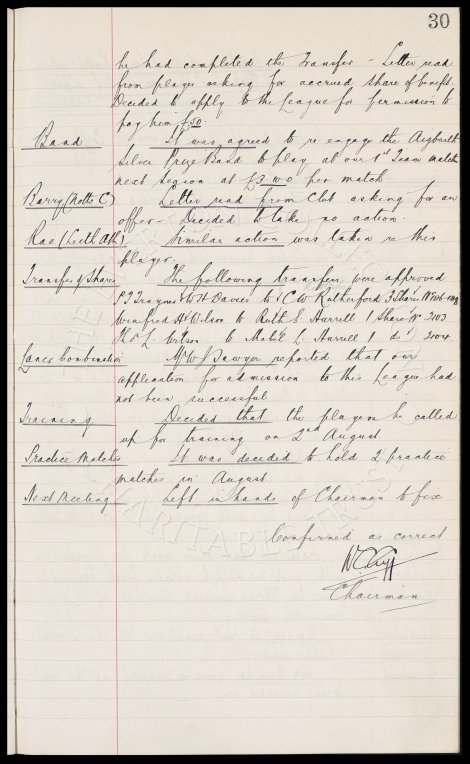 30
he had completed the Transfer - Letter read
from player asking for accrued share of benefit.
Decided to apply to the League for permission to
pay him £50.
Band It was agreed to re engage the Aigburth
Silver Prize Band to play at our 1st Team matches
next season at £3 per match
Barry (Notts C) Letter read from Club asking for an
offer - Decided to take no action.
Rae (Leith Ath) Similar action was taken re this
player.
Transfer of Shares The following transfers were approved
& W H Davies to C W Rutherford 3 Shares
Winifred H Wilson to Ruth E Harrell 1 Share No 3103
Thos L Wilson to Mabel L Harrell 1 do 3104
Lancs Combination Mr W J Sawyer reported that our
application for admission to this League had
not been successful
Training Decided that the players be called
up for training on 2nd August
Practice Matches It was decided to hold 2 practice
matches in August.
Next Meeting Left in hands of Chairman to fix
Confirmed as correct
Chairman
CHARITABLE TRUST